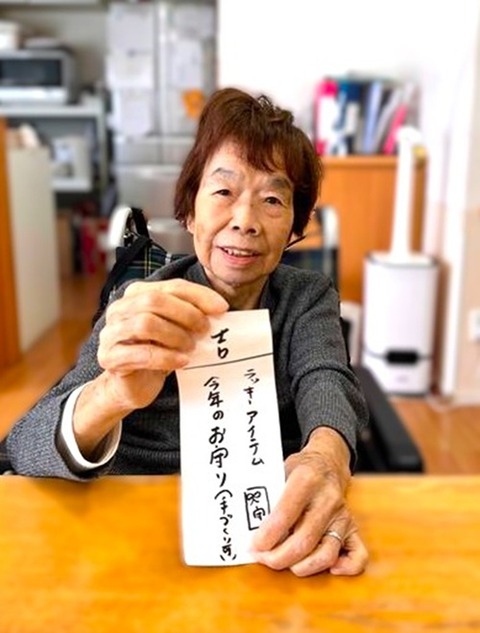 吉
ラッキーアイテム
今年のお守り(手づくり